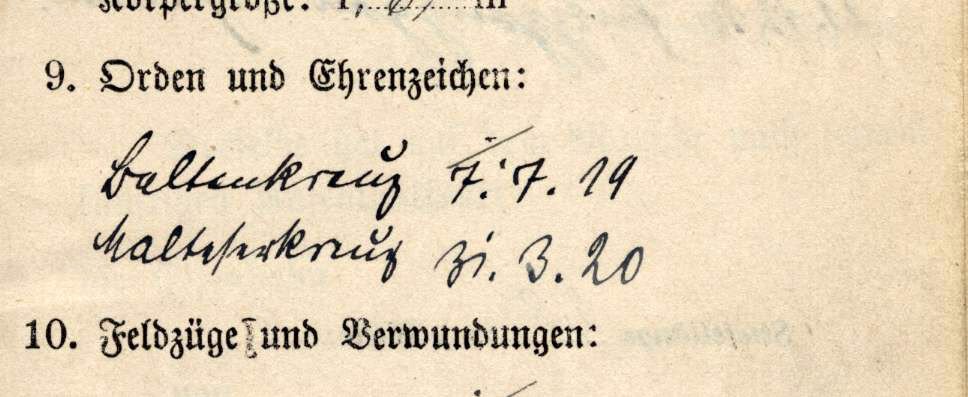 Körpergröße: 1, m
9. Orden und Ehrenzeichen:
Baltenkreuz 7. 7. 19
Malteserkreuz 31. 3. 20
10. Feldzüge und Verwundungen: